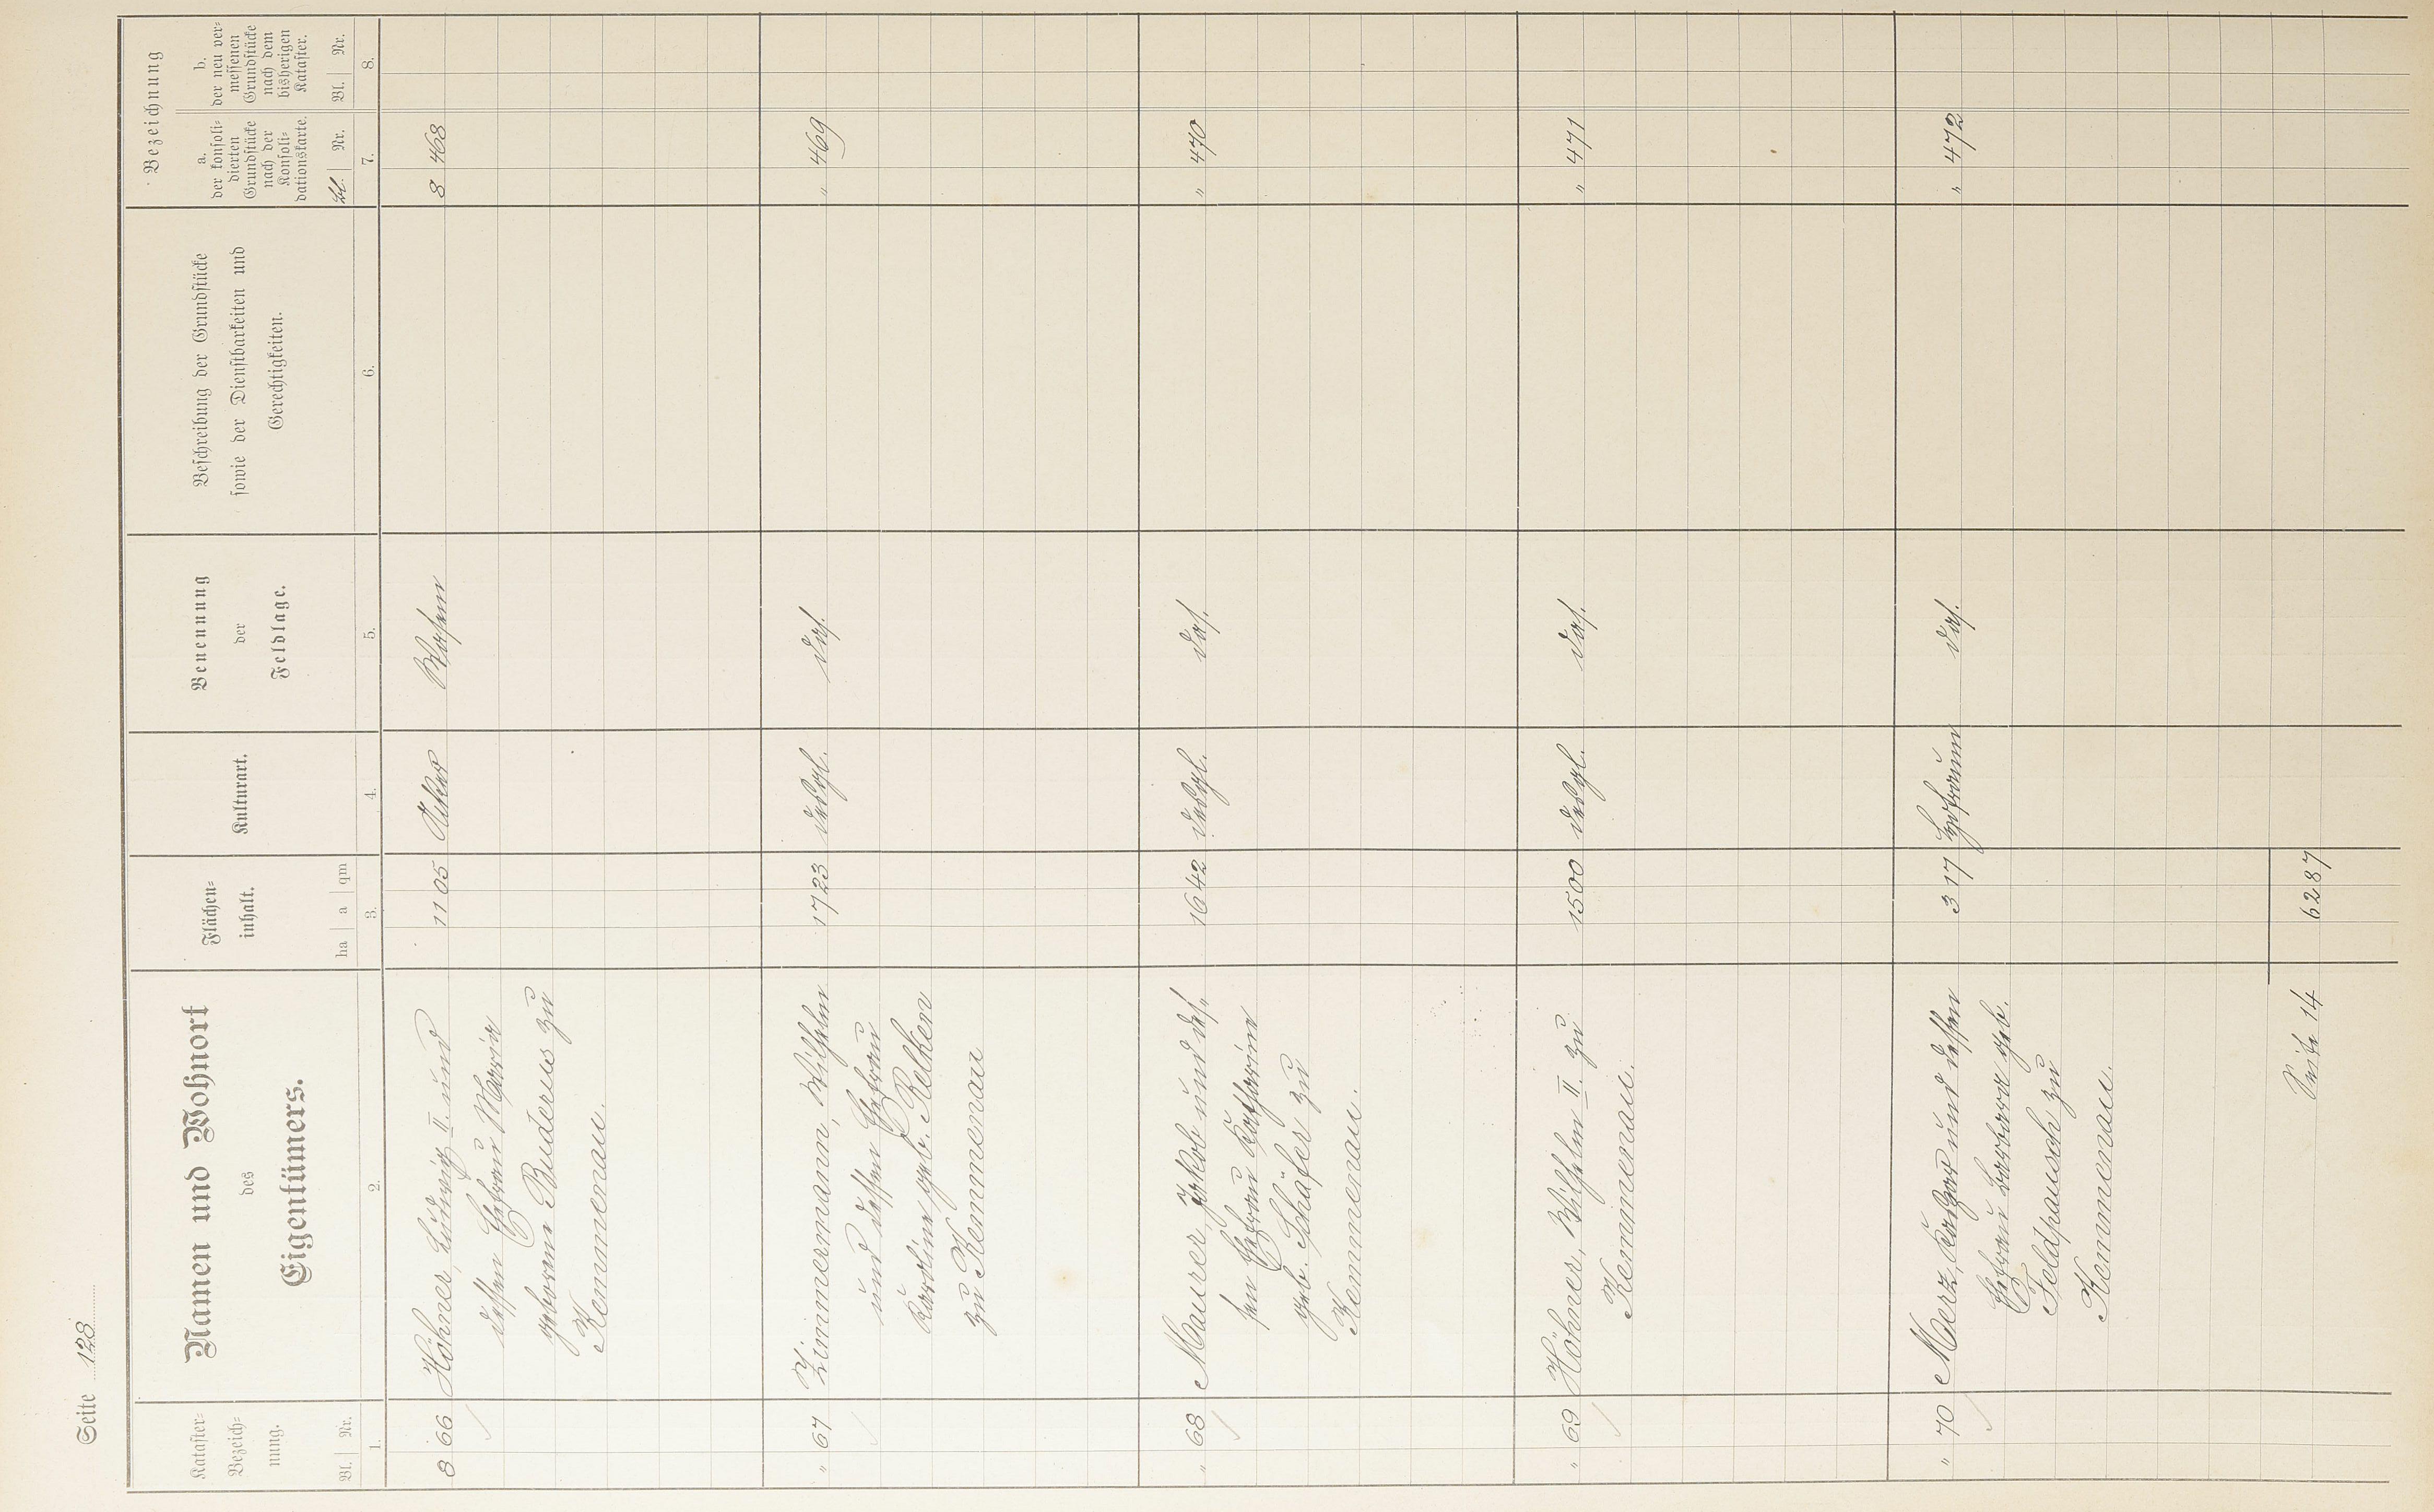 Seite 128
Kataster-
Bezeich-
nung.
Bl. Nr.
1.
Namen und Wohnort
des
Eigentümers.
2.
Flächen-
inhalt.
ha a qm
3.
Kulturart.
4.
Benennung
der
Feldlage.
5.
Beschreibung der Grundstücke
sowie der Dienstbarkeiten und
Gerechtigkeiten.
6.
Bezeichnung
a.
der konsoli-
dierten
Grundstücke
nach der
Konsoli-
dationskarte.
Bl. Nr.
7.
b.
der neu ver-
messenen
Grundstücke
nach dem
bisherigen
Kataster.
Bl. Nr.
8.
8 66 Höhner, Ludwig II. und 11 05 Acker Wasem 8 468
dessen Ehefrau Maria
geborene Buderus zu
Kemmenau.
" 67 Zimmermann, Wilhelm 17 23 desgl. das. " 469
und dessen Ehefrau
Karoline, geb. Relken
zu Kemmenau
" 68 Maurer, Jakob und des- 16 42 desgl. das. " 470
sen Ehefrau Katharine
geb. Schäfer zu
Kemmenau.
" 69 Höhner, Wilhelm II. zu 15 00 desgl. das. " 471
Kemmenau.
" 70 Merz, Kaspar und dessen 3 17 Hofraum das. " 472
Ehefrau Barbara geb.
Feldpausch zu
Kemmenau.
Seite 14 62 87